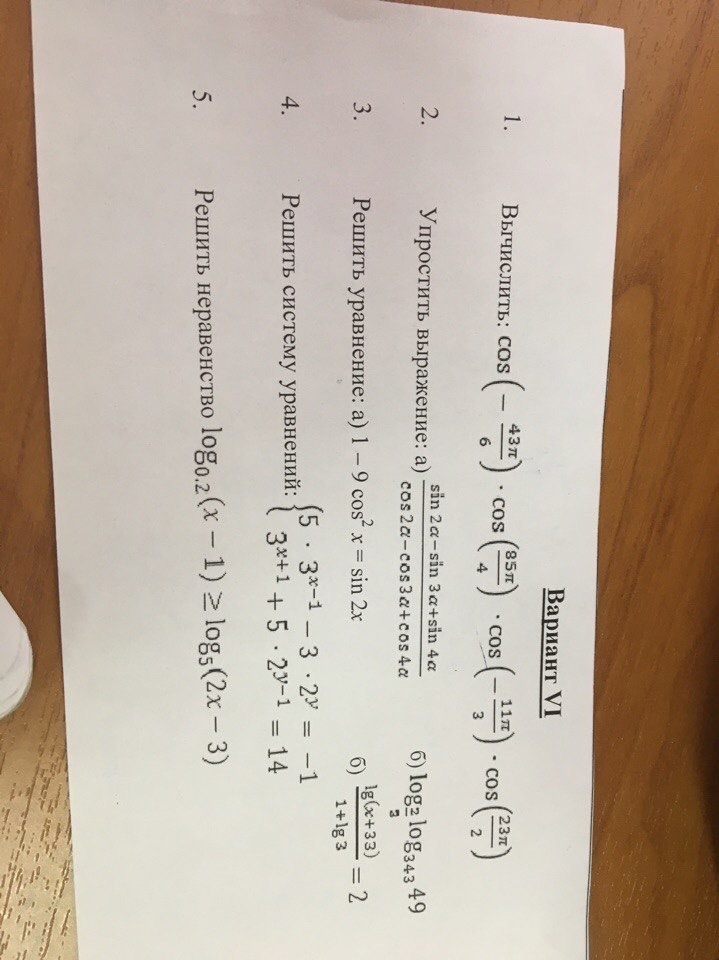 Вариант VI
1. Вычислить: cos(−43π/6) · cos(85π/4) · cos(−11π/3) · cos(23π/2)
2. Упростить выражение: а) (sin 2α−sin 3α+sin 4α)/(cos 2α−cos 3α+cos 4α) б) log_(2/3) log_343 49
3. Решить уравнение: а) 1 − 9 cos² x = sin 2x б) lg(x+33)/(1+lg 3) = 2
4. Решить систему уравнений: { 5 · 3^(x−1) − 3 · 2^y = −1
3^(x+1) + 5 · 2^(y−1) = 14
5. Решить неравенство log_0.2(x − 1) ≥ log_5(2x − 3)